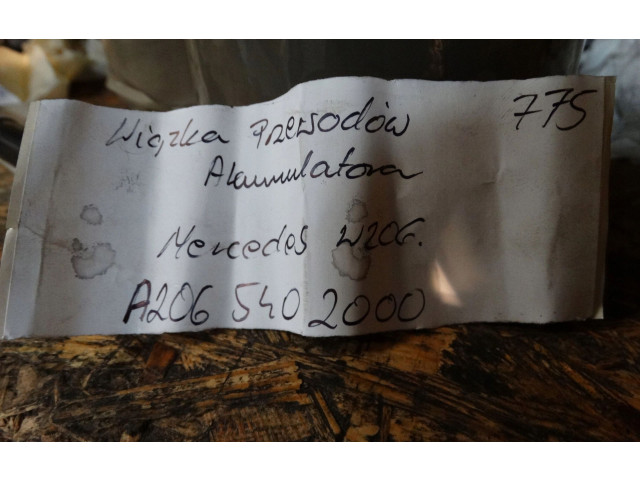 Wiązka Przewodów 775
Akumulatora
Mercedes W206.
A206 540 2000